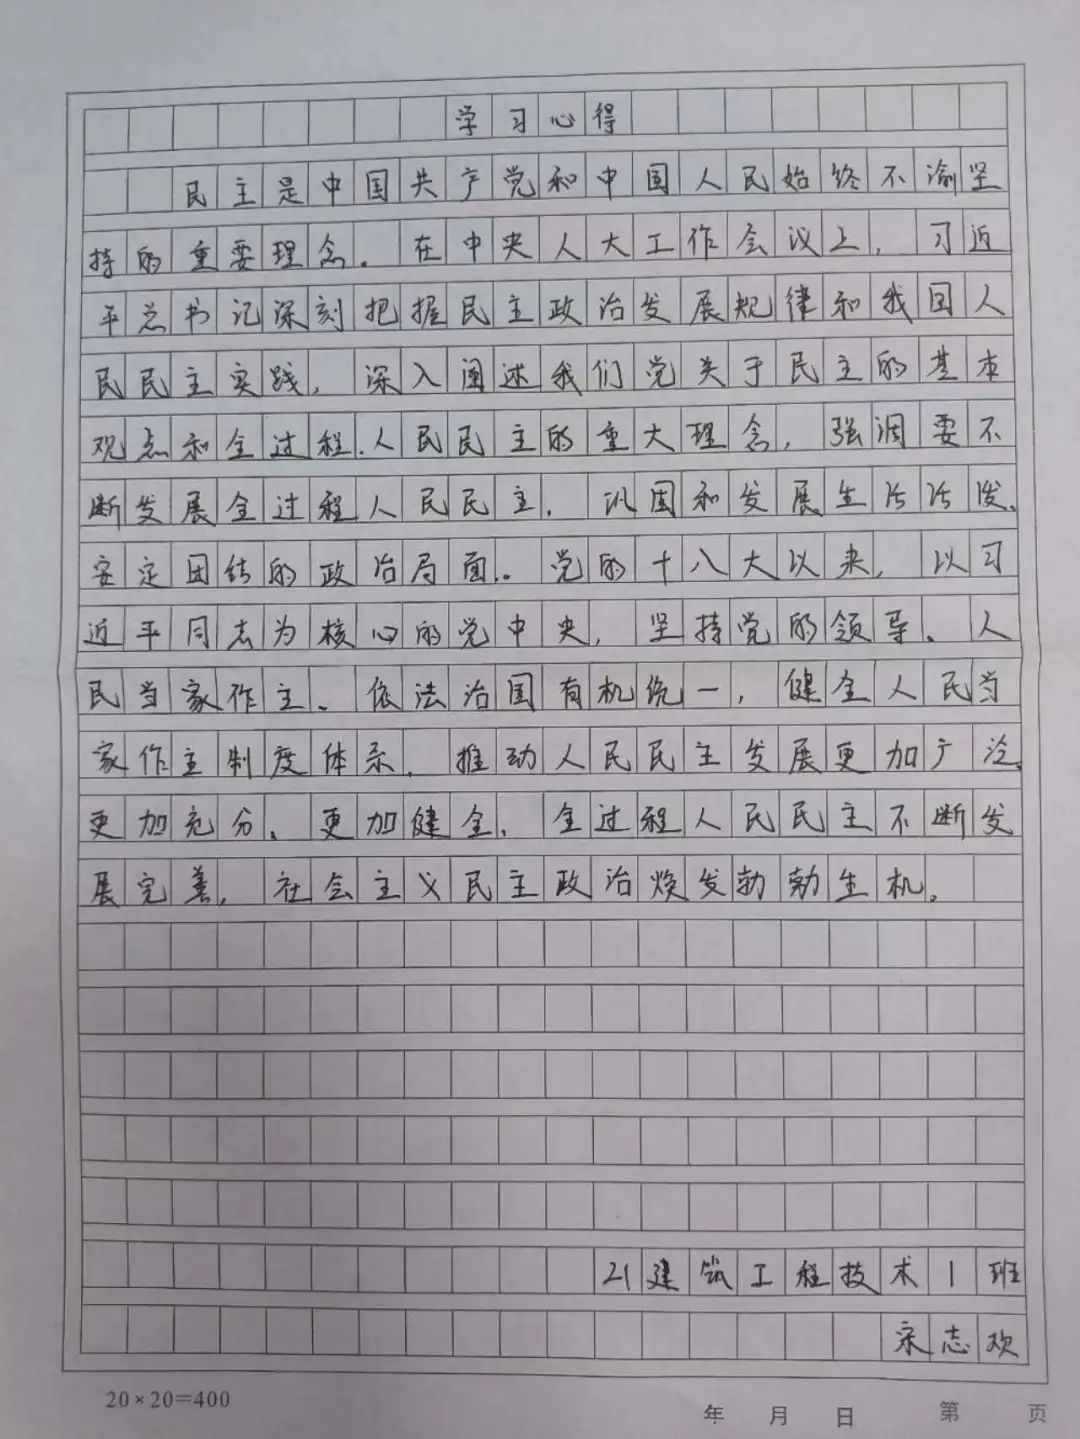 学习心得
民主是中国共产党和中国人民始终不渝坚
持的重要理念。在中央人大工作会议上，习近
平总书记深刻把握民主政治发展规律和我国人
民民主实践，深入阐述我们党关于民主的基本
观点和全过程.人民民主的重大理念，强调要不
断发展全过程人民民主，巩固和发展生活活泼、
安定团结的政治局面。党的十八大以来，以习
近平同志为核心的党中央，坚持党的领导、人
民当家作主、依法治国有机统一，健全人民当
家作主制度体系，推动人民民主发展更加广泛、
更加充分、更加健全，全过程人民民主不断发
展完善，社会主义民主政治焕发勃勃生机。
21建筑工程技术1班
宋志欢
20×20=400
年 月 日 第 页